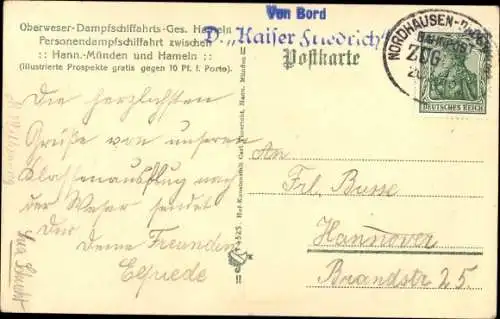 Oberweser-Dampfschiffahrts-Ges. Hameln
Personendampfschiffahrt zwischen
:: Hann.-Münden und Hameln ::
(Illustrierte Prospekte gratis gegen 10 Pf. f. Porto).
Von Bord
D. „Kaiser Friedrich"
Postkarte
NORDHAUSEN
BAHNPOST
ZUG
DEUTSCHES REICH
Die herzlichsten
Grüße von unserem
Klassenausflug nach
der Weser sendet
Dir
Deine Freundin
Elfriede
An
Frl. Busse
Hannover
Brandstr. 25.